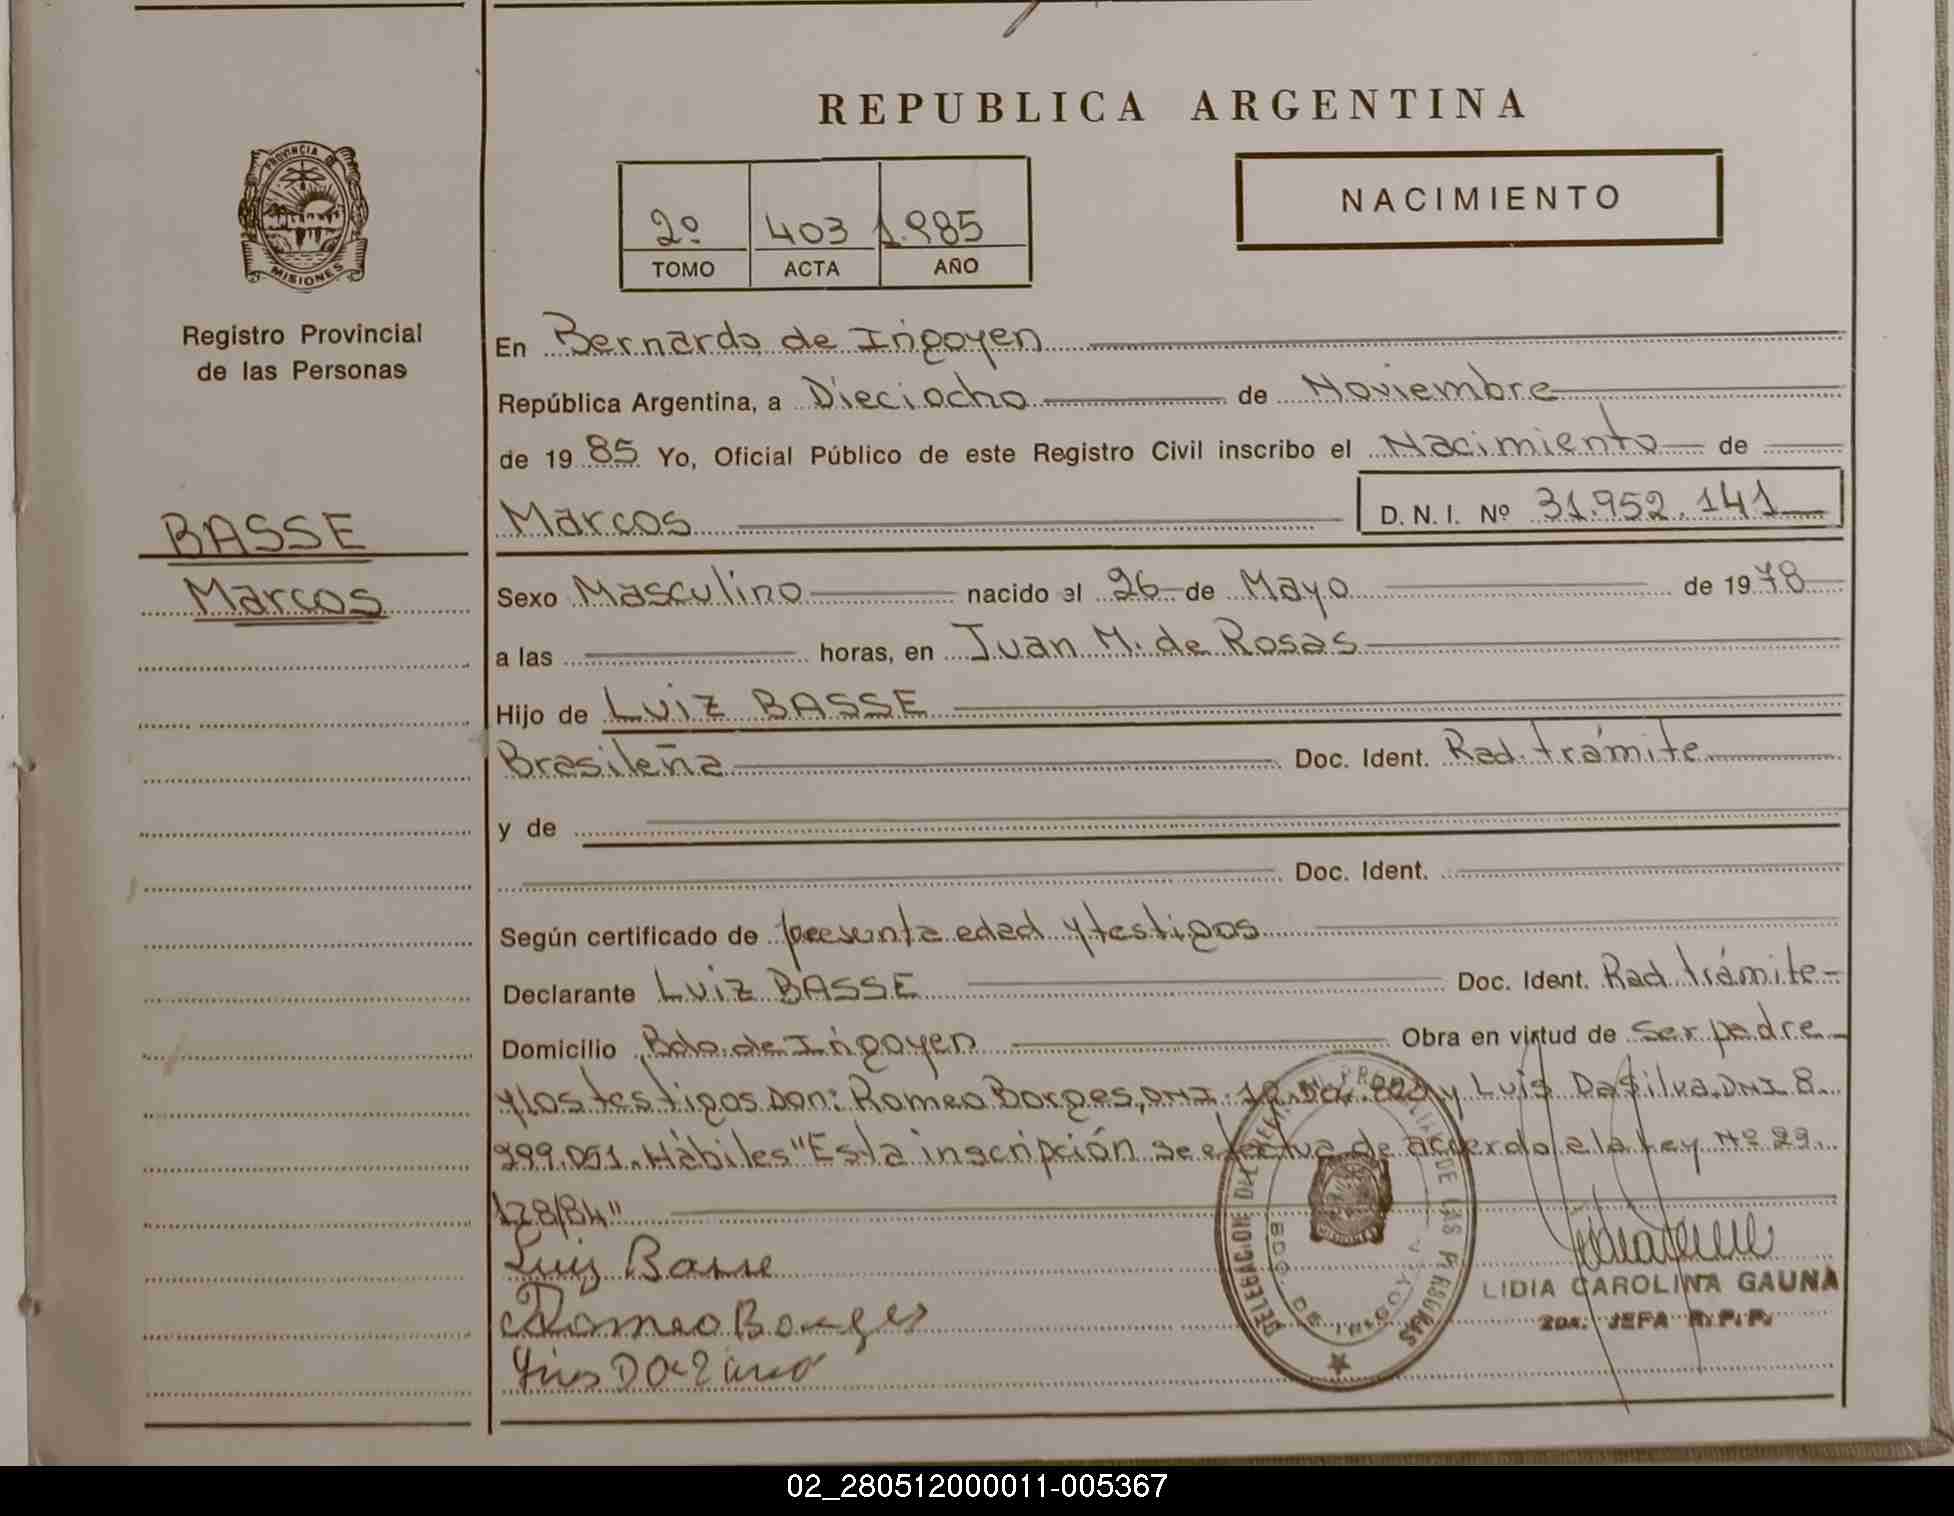 REPUBLICA ARGENTINA
PROVINCIA DE
MISIONES
Registro Provincial
de las Personas
NACIMIENTO
2º 403 1.985
TOMO ACTA AÑO
En Bernardo de Irigoyen
República Argentina, a Dieciocho de Noviembre
de 19 85 Yo, Oficial Público de este Registro Civil inscribo el Nacimiento de
Marcos D. N. I. Nº 31.952.141
BASSE
Marcos
Sexo Masculino nacido el 26 de Mayo de 19 78
a las horas, en Juan M. de Rosas
Hijo de Luiz BASSE
Brasileña Doc. Ident. Rad. trámite
y de
Doc. Ident.
Según certificado de presunta edad y testigos
Declarante Luiz BASSE Doc. Ident. Rad. trámite
Domicilio Bdo. de Irigoyen Obra en virtud de ser padre
y los testigos Don: Romeo Borges, DNI. y Luis Da Silva, DNI 8.
999.051. Hábiles "Esta inscripción se efectua de acuerdo a la Ley Nº 23.
128/84"
Luiz Basse
Romeo Borges
DELEGACION DEL REGISTRO PROVINCIAL DE LAS PERSONAS
BDO. DE IRIGOYEN
LIDIA CAROLINA GAUNA
2DA. JEFA R.P.P.
02_280512000011-005367